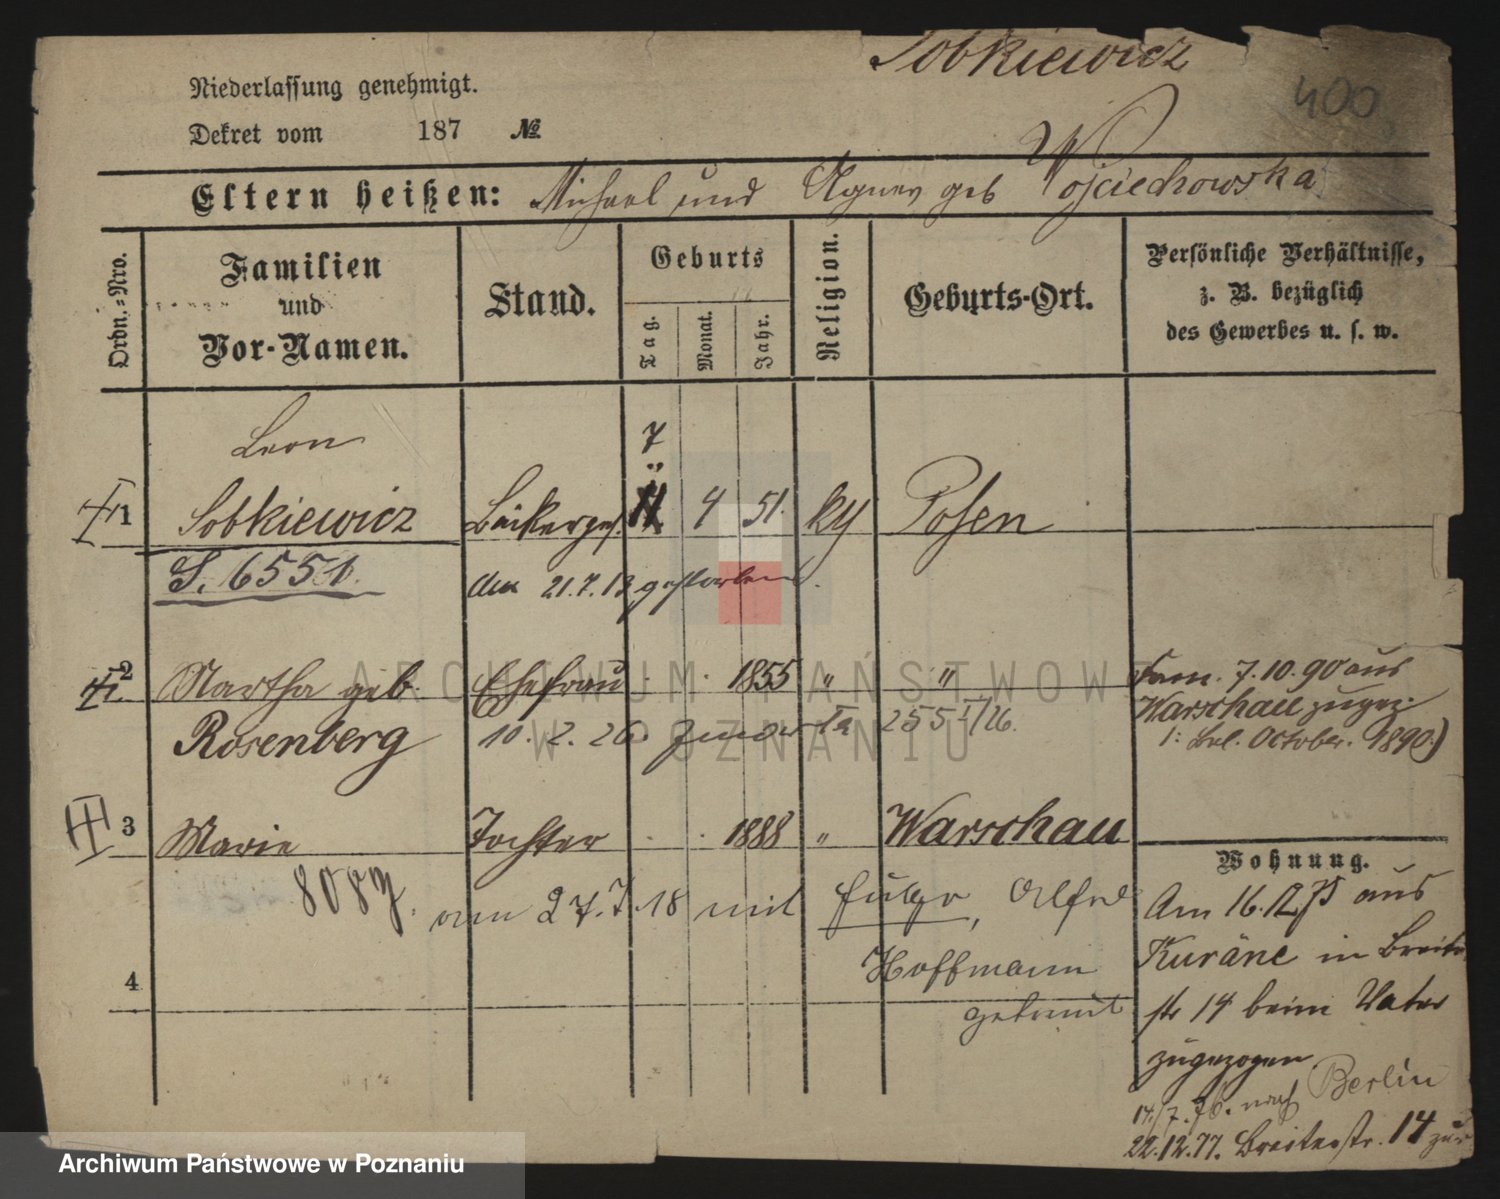 Sobkiewicz
400
Niederlassung genehmigt.
Dekret vom 187 №
Eltern heißen: Michael und Agnes geb Wojciechowska
Ordn.=Nro.
Familien
und
Vor-Namen.
Stand.
Geburts
Tag.
Monat.
Jahr.
Religion.
Geburts-Ort.
Persönliche Verhältnisse,
z. B. bezüglich
des Gewerbes u. s. w.
Leon 7
1 Sobkiewicz Bäckerges. 11. 4 51. Posen
S. 6551.
21.7.13 gestorben.
2 Martha geb. Ehefrau . . 1855 " "
Rosenberg 10. 2. 26.
Fam. 7.10.90 aus
Warschau zugez.
October. 1890.)
3 Marie Tochter . . 1888 " Warschau
8089. am 27.7.18 mit Alfred
Hoffmann
getraut
4
Wohnung.
Am 16.12.75 aus
in Breite
str 14 beim Vater
zugezogen
14./7.76. nach Berlin
22.12.77. Breitestr. 14
ARCHIWUM PAŃSTWOWE
W POZNANIU
Archiwum Państwowe w Poznaniu